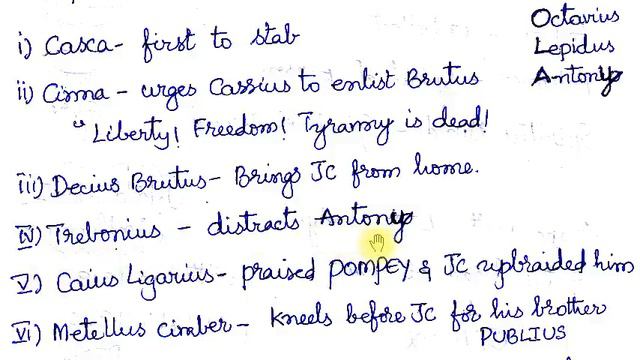 Octavius
i) Casca- first to stab
Lepidus
ii) Cinna - urges Cassius to enlist Brutus
Antony
"Liberty! Freedom! Tyranny is dead!
iii) Decius Brutus- Brings JC from home.
iv) Trebonius - distracts Antony
v) Caius Ligarius- praised POMPEY & JC upbraided him
vi) Metellus cimber- Kneels before JC for his brother
PUBLIUS